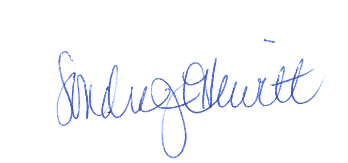 Sondra J Hewitt